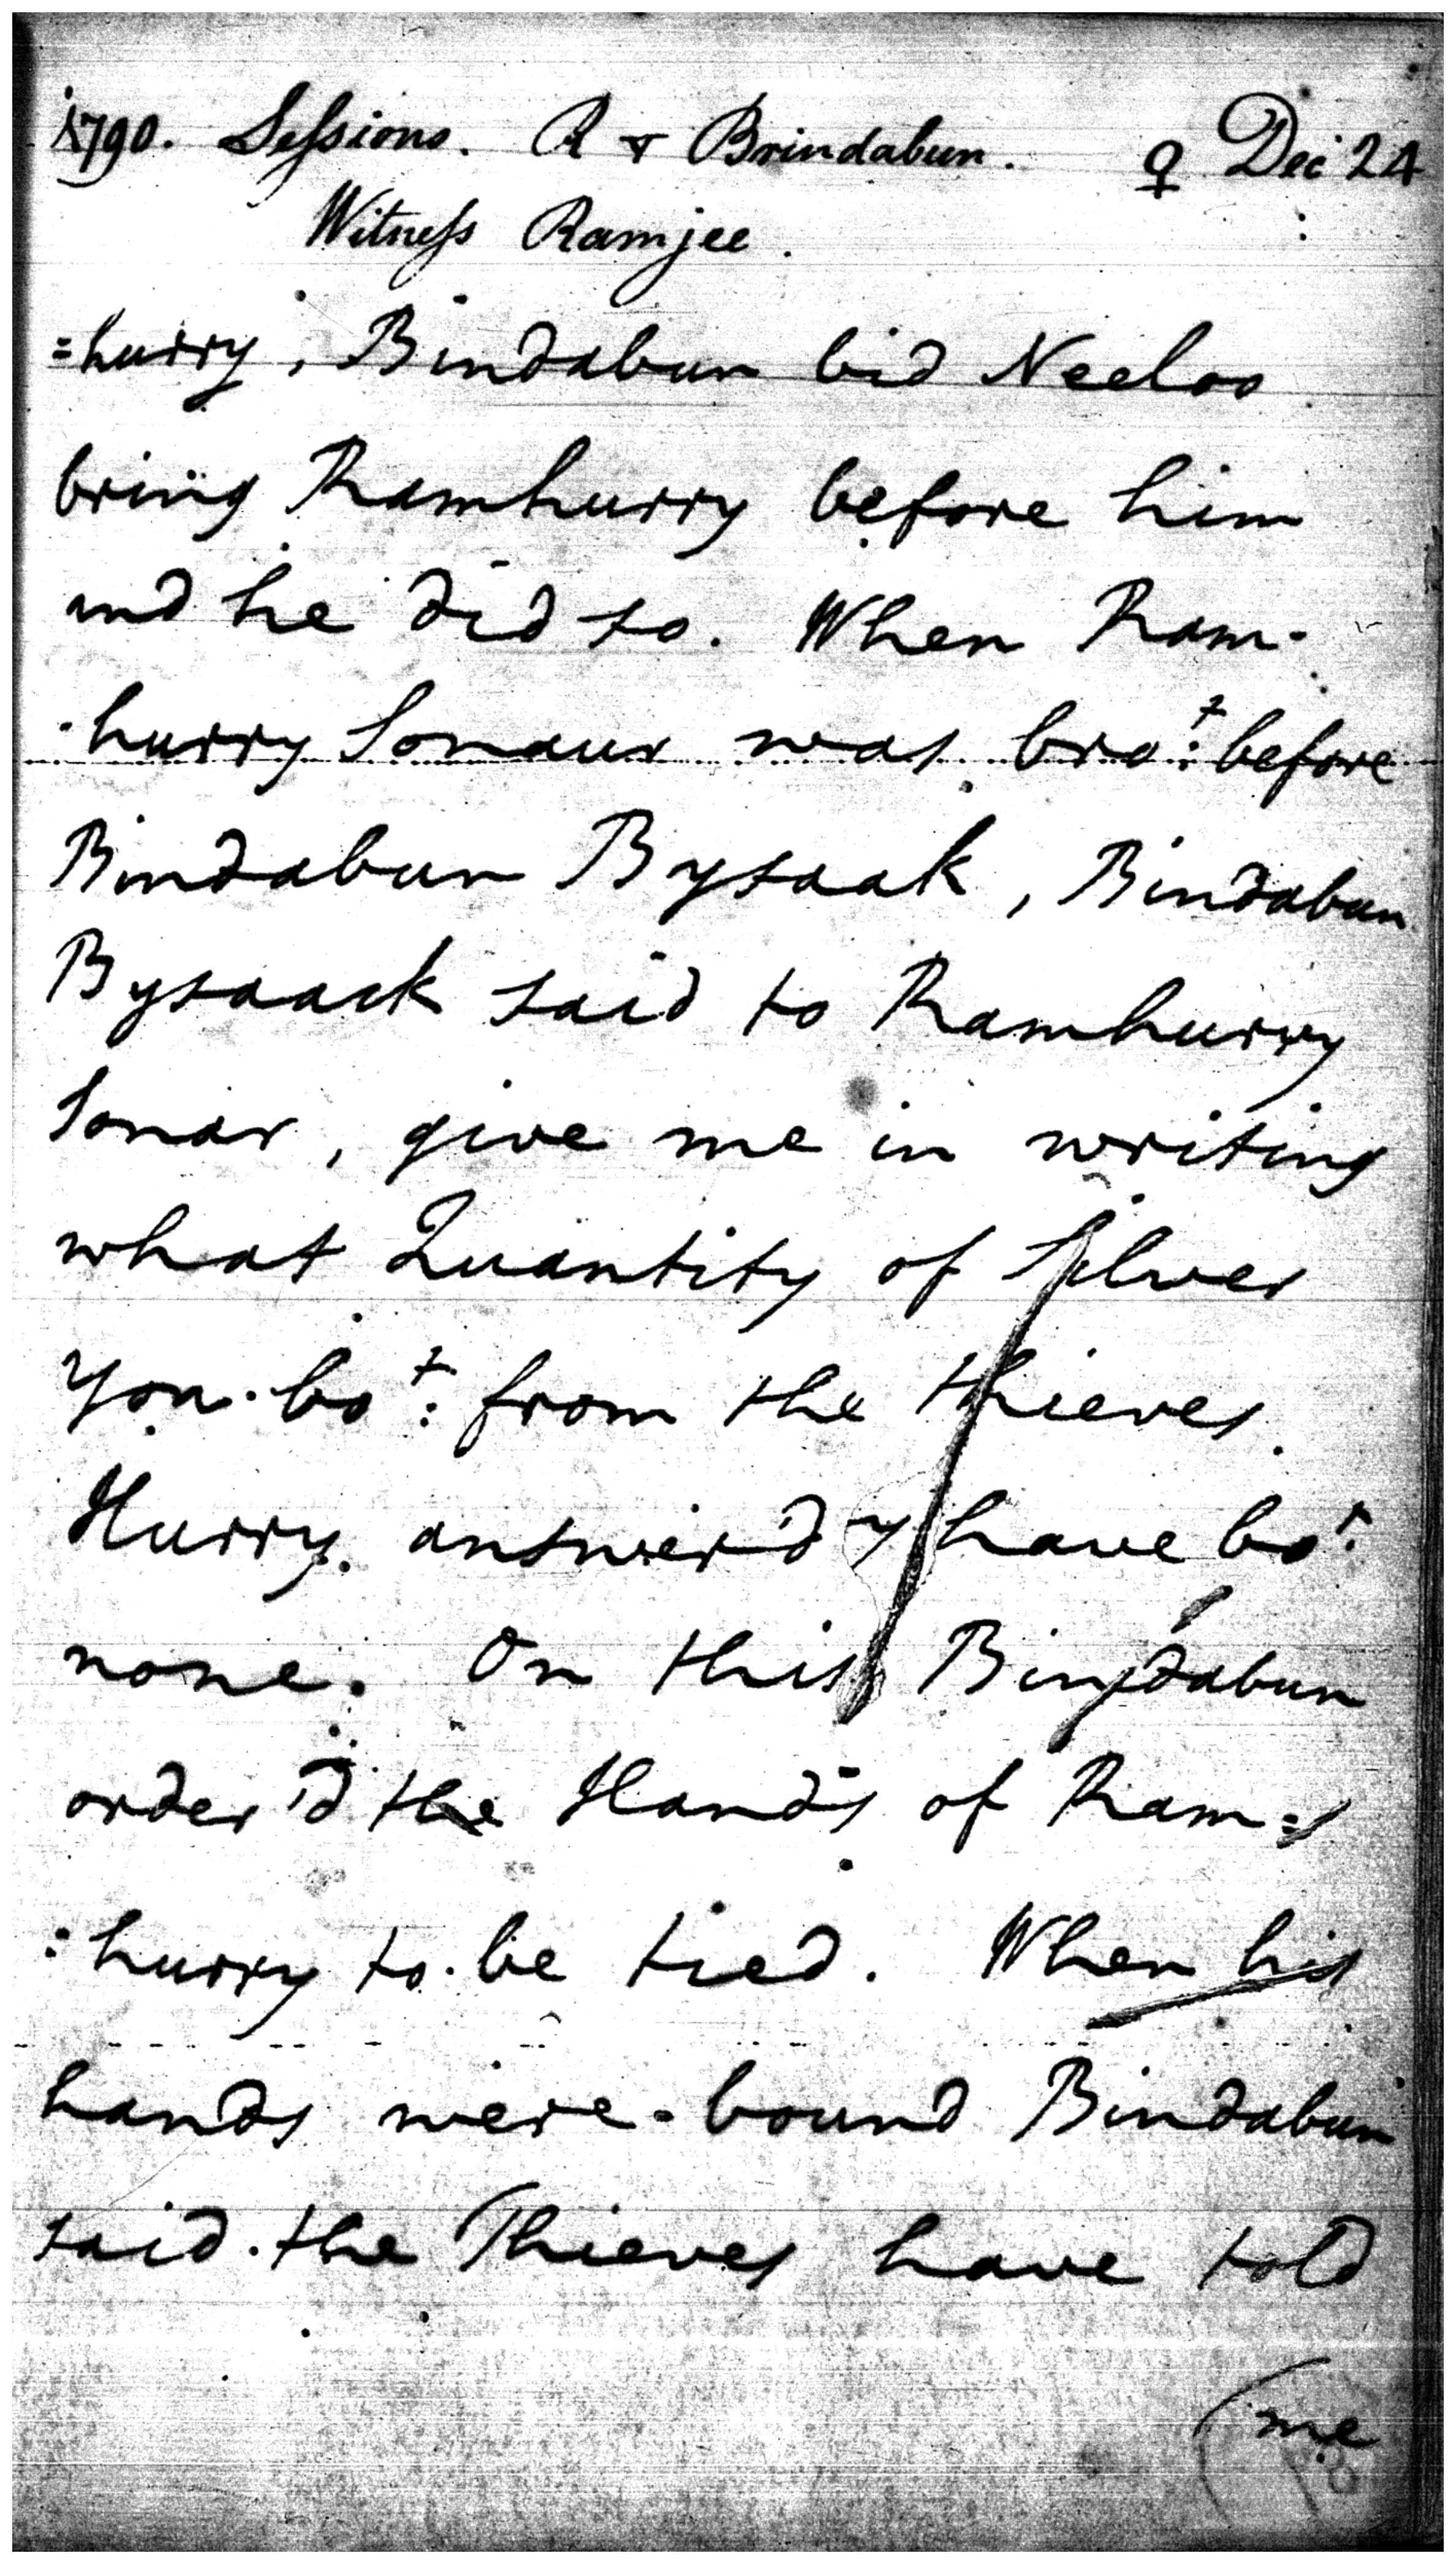 1790. Sessions. R v Brindabun. ♀ Dec 24
Witness Ramjee.
=hurry, Bindabun bid Neeloo
bring Ramhurry before him
and he did so. When Ram-
-hurry Sonaur was bro:t before
Bindabun Bysaak, Bindabun
Bysaack said to Ramhurry
Sonar, give me in writing
what Quantity of Silver
you bo:t from the thieves.
Hurry answer'd I have bo:t
none. On this Bindabun
order'd the Hands of Ram=
:hurry to be tied. When his
hands were bound Bindabun
said the Thieves have told
(me